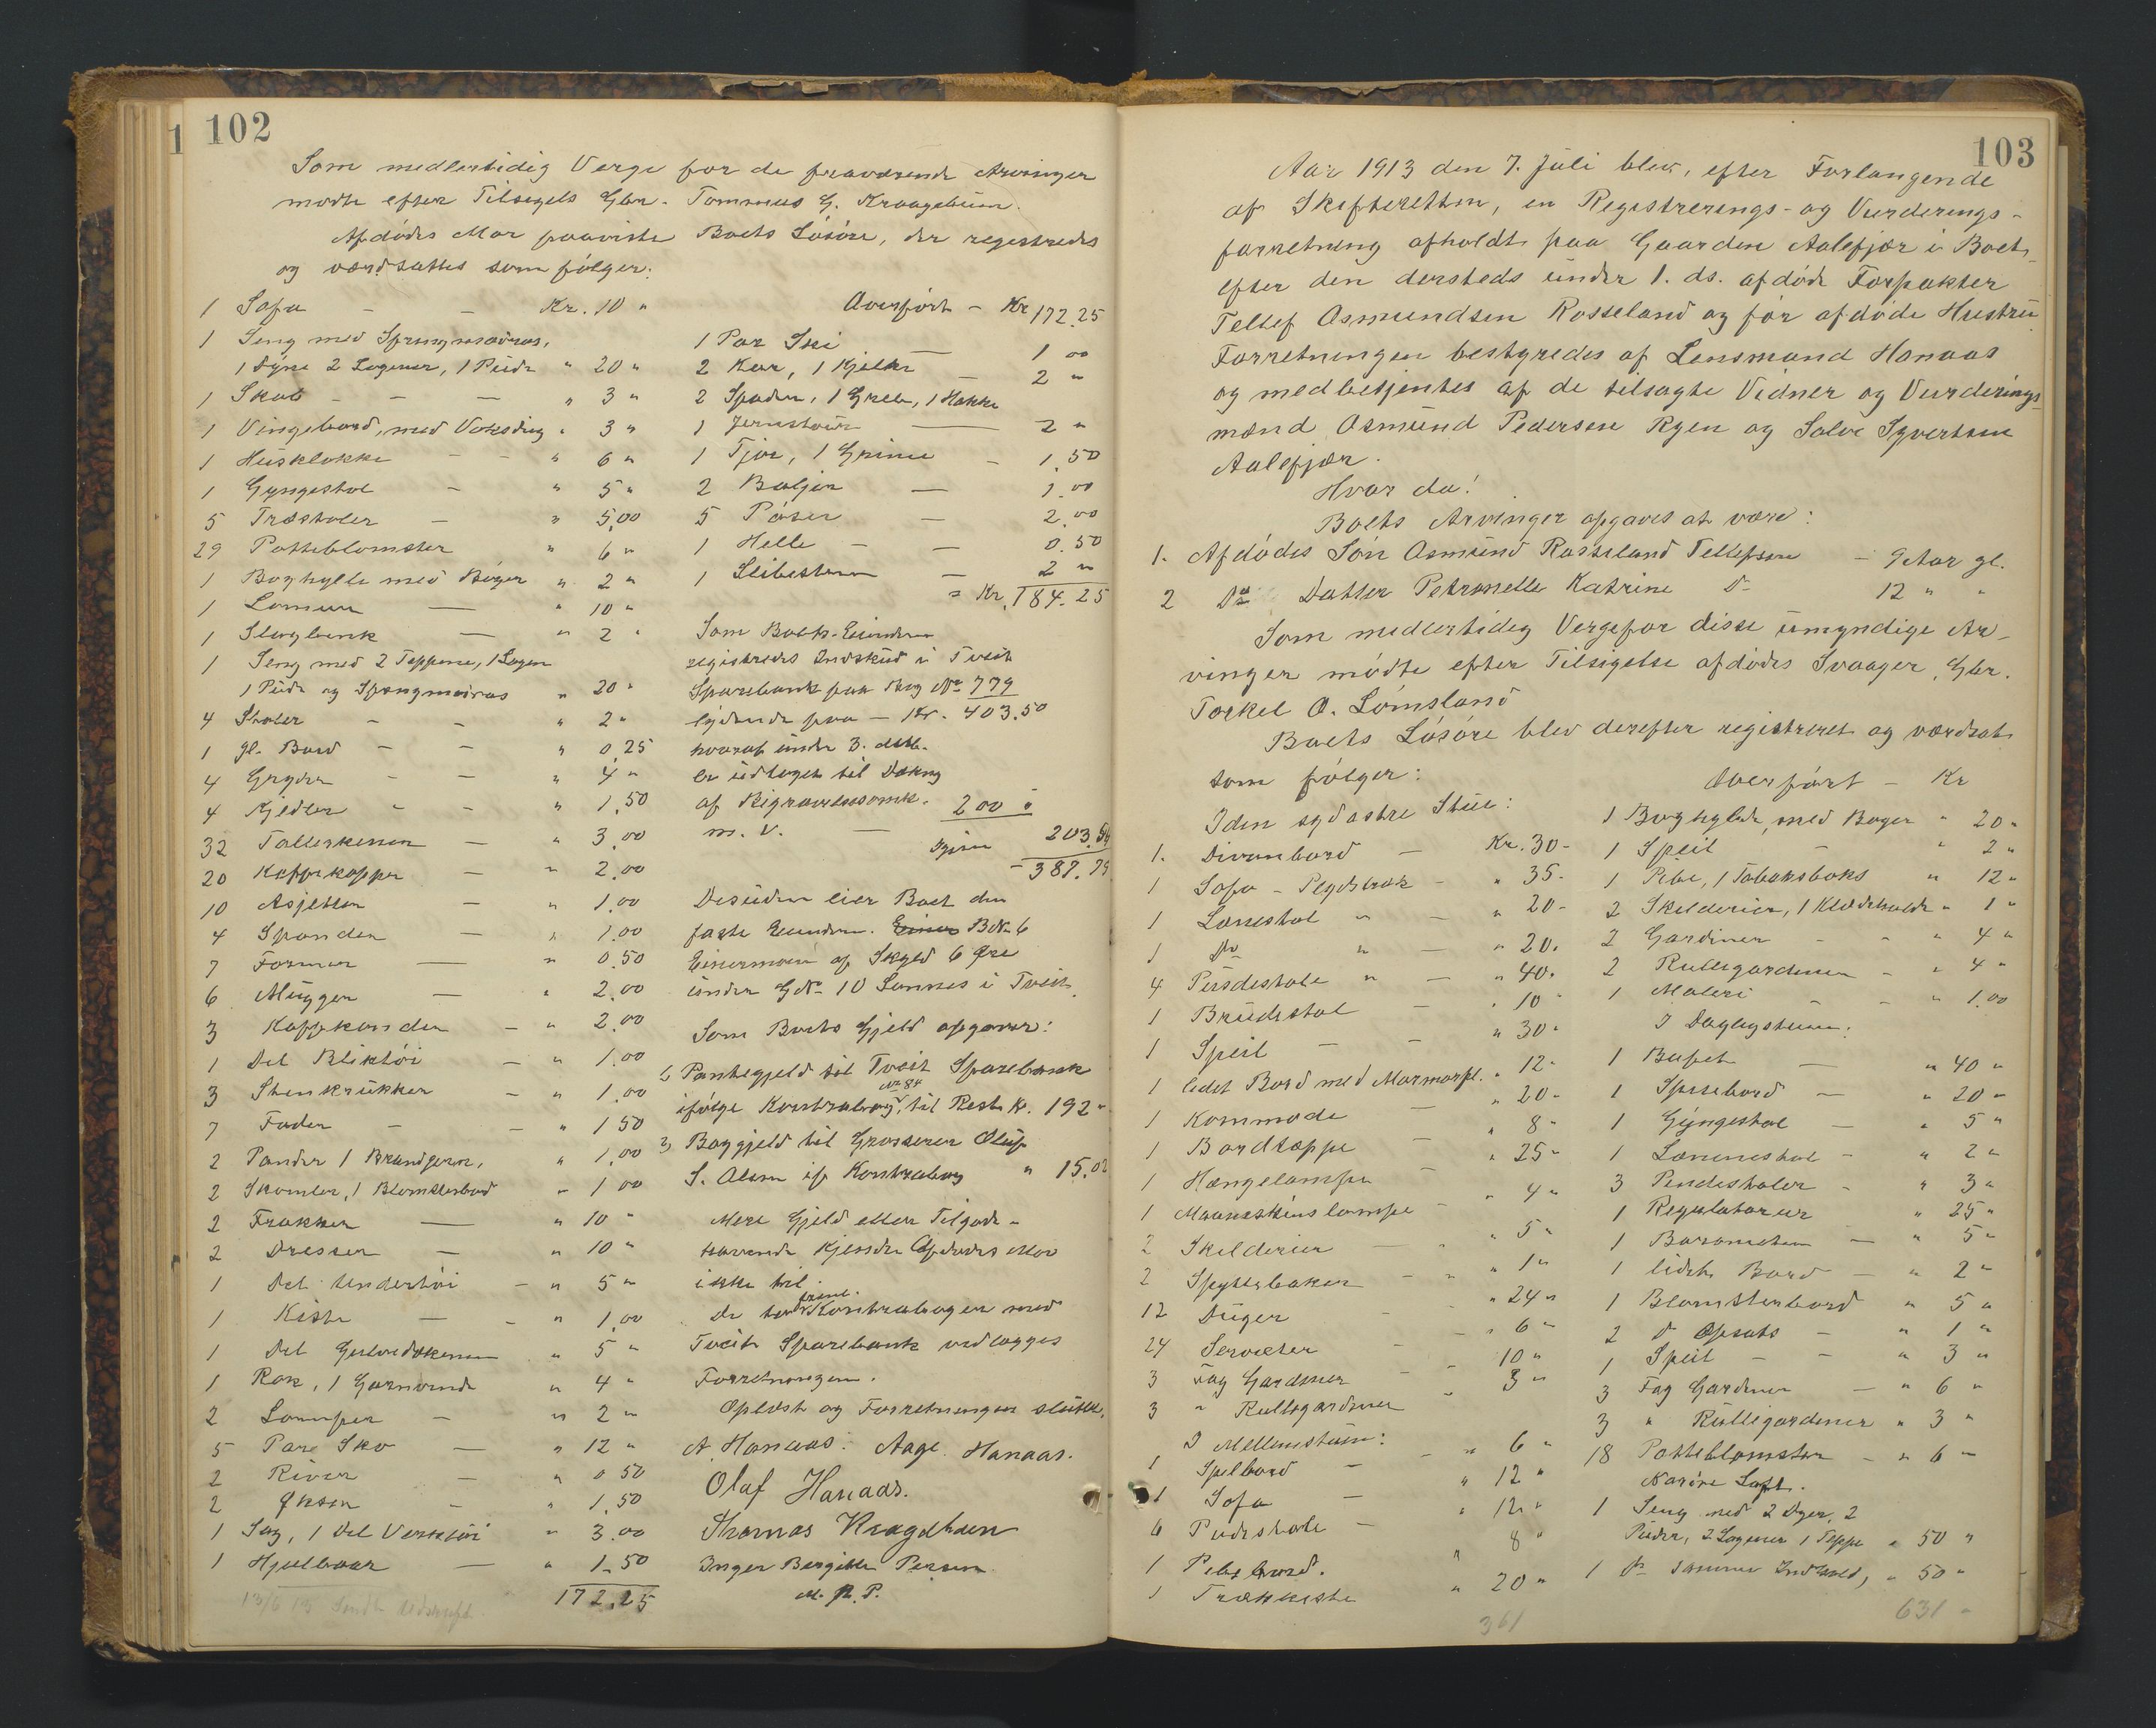 1 102
Som medlertidig Verge for de fraværende Arvinger
mødte efter Tilsigels Gbr. Tommas G. Kraagebuen.
Afdødes Mor paaviste Boets Løsøre, der registredes
og værdsattes som følger:
1 Sofa - - Kr. 10 "
1 Seng med Springmadras,
1 Dyne 2 Lagener, 1 Pude " 20 "
1 Skab - - - " 3 "
1 Vingebord, med Voksdug " 3 "
1 Husklokke - - " 6 "
1 Gyngestol - " 5 "
5 Træstoler - " 5,00
29 Potteblomster " 6 "
1 Boghylle med Bøger " 2 "
1 Lommeur — " 10 "
1 Slagbænk — " 2 "
1 Seng med 2 Teppene, 1 Lagen
1 Pude og Springmadras " 20 "
4 Stoler - - " 2 "
1 gl. Bord - - " 0,25
4 Gryder - - " 4 "
4 Kjedler - - " 1,50
32 Tallerkener — " 3,00
20 Kaffekopper — " 2,00
10 Asjetter — " 1,00
4 Spander — " 1,00
7 Former — " 0,50
6 Muggen — " 2,00
3 Kaffekander - " 2,00
1 Del Bliktøi - " 1,00
3 Stenkrukker - " 1,00
7 Fader - - " 1 50
2 Pander 1 Brandjern, " 1,00
2 Skamler, 1 Blomsterbord " 1 00
2 Frakker — " 10 "
2 Dresser — " 10 "
1 Del Undertøi - " 5 "
1 Kiste — - " 1,00
1 Del Gulvdækener " 5 "
1 Rok, 1 Garnvinde " 4 "
2 Lamper - " 2 "
5 Pare Sko — " 12 "
2 River — " 0 50
2 Økser - " 1,50
1 Sag, 1 Del Verktøi " 3,00
1 Hjulbaar — " 1,50
172,25
13/6 13 Sendt Udskrift
Overført - Kr 172,25
1 Par Ski — 1 00
2 Kar, 1 Kjelke — 2 "
2 Spader, 1 Greb, 1 Hakke
1 Jernstaur — 2 "
1 Tjor, 1 Grime - 1,50
2 Baljer — 1,00
5 Poser — 2,00
1 Helle - — 0,50
1 Slibesten — 2 "
= Kr. 184.25
Som Boets Eiendom
registredes Indskud i Tveit
Sparebank paa Bog No 779
lydende paa - Kr. 403.50
hvoraf under 3. dette
er udtaget til Dækng
af Bigravelsesomk. 200 "
m. v. — Igjen 203,50
- 387.75
Desuden eier Boet den
faste Eiendom. Einer BNo 6
Einermoen af Skyld 6 Øre
under GNo 10 Sannes i Tveit.
Som Boets Gjeld opgaves:
1, Pantegjeld til Tveit Sparebank
ifølge Kontrabog No 84, til Rest Kr. 192 "
2, Boggjeld til Grosserer Oluf
S. Olsen if. Kontrabog " 15,02
Mere Gjeld eller Tilgode-
havende kjendte Afdødes Mor
ikke til.
De tvende Kontrabøger med
Tveit Sparebank vedlægges
Forretningen.
Oplæst og Forretningen sluttet.
A. Hanaas. Aage Hanaas.
Olaf Hanaas.
Thomas Kragebuen
Inger Bergitte Persen
M. P. P.
103
Aar 1913 den 7. Juli blev, efter Forlangende
af Skifteretten, en Registrerings- og Vurderings-
forretning afholdt paa Gaarden Aalefjær i Boet
efter den dersteds under 1. ds. afdøde Forpakter
Tellef Osmundsen Rosseland og før afdøde Hustru
Forretningen bestyredes af Lensmand Hanaas
og medbetjentes af de tilsagte Vidner og Vurderings-
mænd Osmund Pedersen Ryen og Salve Syvertsen
Aalefjær.
Hvor da!
Boets Arvinger opgaves at være:
1. Afdødes Søn Osmund Rosseland Tellefsen - 9 Aar gl.
2 Do Datter Petronelle Katrine Do 12 " "
Som medlertidig Verge for disse umyndige Ar-
vinger mødte efter Tilsigelse afdødes Svaager, Gbr.
Torkel O. Lømsland
Boets Løsøre blev derefter registreret og værdsat
som følger:
I den sydøstre Stue:
1. Divanbord — Kr. 30 -
1 Sofa - Plydstræk - " 35 -
1 Lænestol " - " 20 -
1 Do " — " 20.
4 Pudestole " — " 40.
1 Brudestol - " 10 "
1 Speil - - " 30 "
1 lidet Bord med Marmorpl. " 12 -
1 Kommode — " 20 -
1 Bordtæppe - " 8 "
1 Hængelampe - " 25 -
1 Maaneskinslampe - " 4 "
2 Skilderier - " 5 "
2 Spyttebakker - " 1 "
12 Duger - " 24 "
24 Servietter - " 6 "
3 Fag Gardiner - " 10 "
3 " Rullegardiner " 3 "
I Mellemstuen:
1 Spilbord - " 6 "
1 Sofa - " 12 "
6 Pudestole - " 12 "
1 Pibebord. " 8 "
1 Trækkiste " 20 "
361
Overført - Kr
1 Boghylde, med Bøger " 20 "
1 Speil - " 2 "
1 Pibe, 1 Tobaksboks " 12 "
2 Skilderier, 1 Klædeholder " 1 "
2 Gardiner - " 4 "
2 Rullegardiner - " 4 "
1 Maleri - - " 1.00
I Dagligstuen:
1 Bufet — " 40 "
1 Spisebord — " 20 "
1 Gyngestol — " 5 "
1 Lænestol - " 2 "
3 Pindestoler - " 3 "
1 Regulatorur " 25 "
1 Barometer — " 5 "
1 lidet Bord - " 2 "
1 Blomsterbord " 5 "
2 Do Opsats - " 1 "
1 Speil - - " 3 "
3 Fag Gardiner — " 6 "
3 " Rullegardiner " 3 "
18 Potteblomster - " 6 "
Nordre Loft.
1 Seng med 2 Dyner, 2
Puder, 2 Lagener 1 Teppe " 50 "
1 Do samme Indhold, " 50 "
631 -